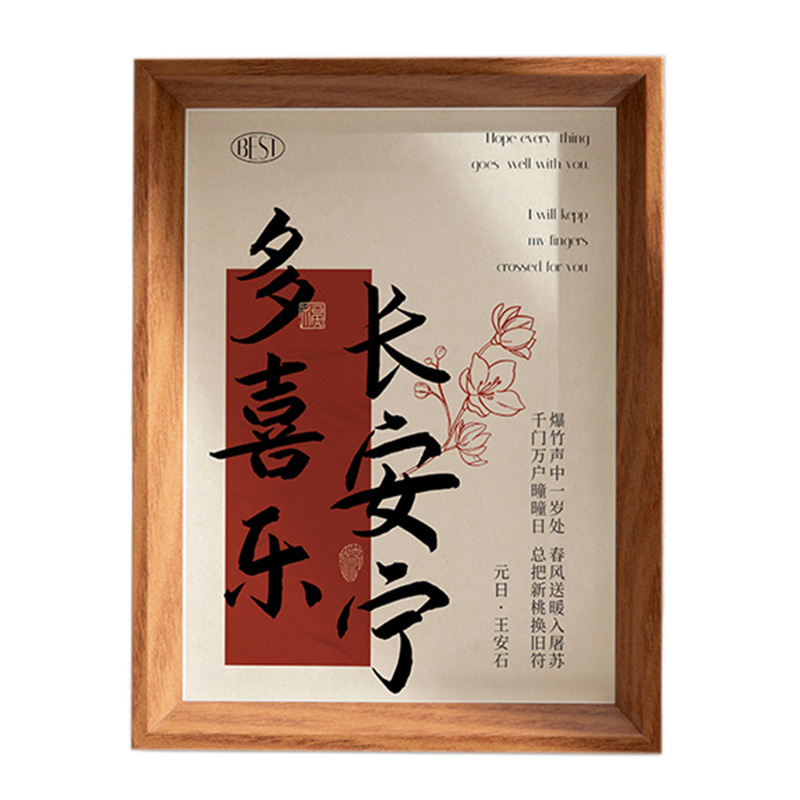 BEST
Hope every thing
goes well with you.
I will kepp
my fingers
crossed for you
多喜乐
长安宁
爆竹声中一岁处 春风送暖入屠苏
千门万户瞳瞳日 总把新桃换旧符
元日·王安石